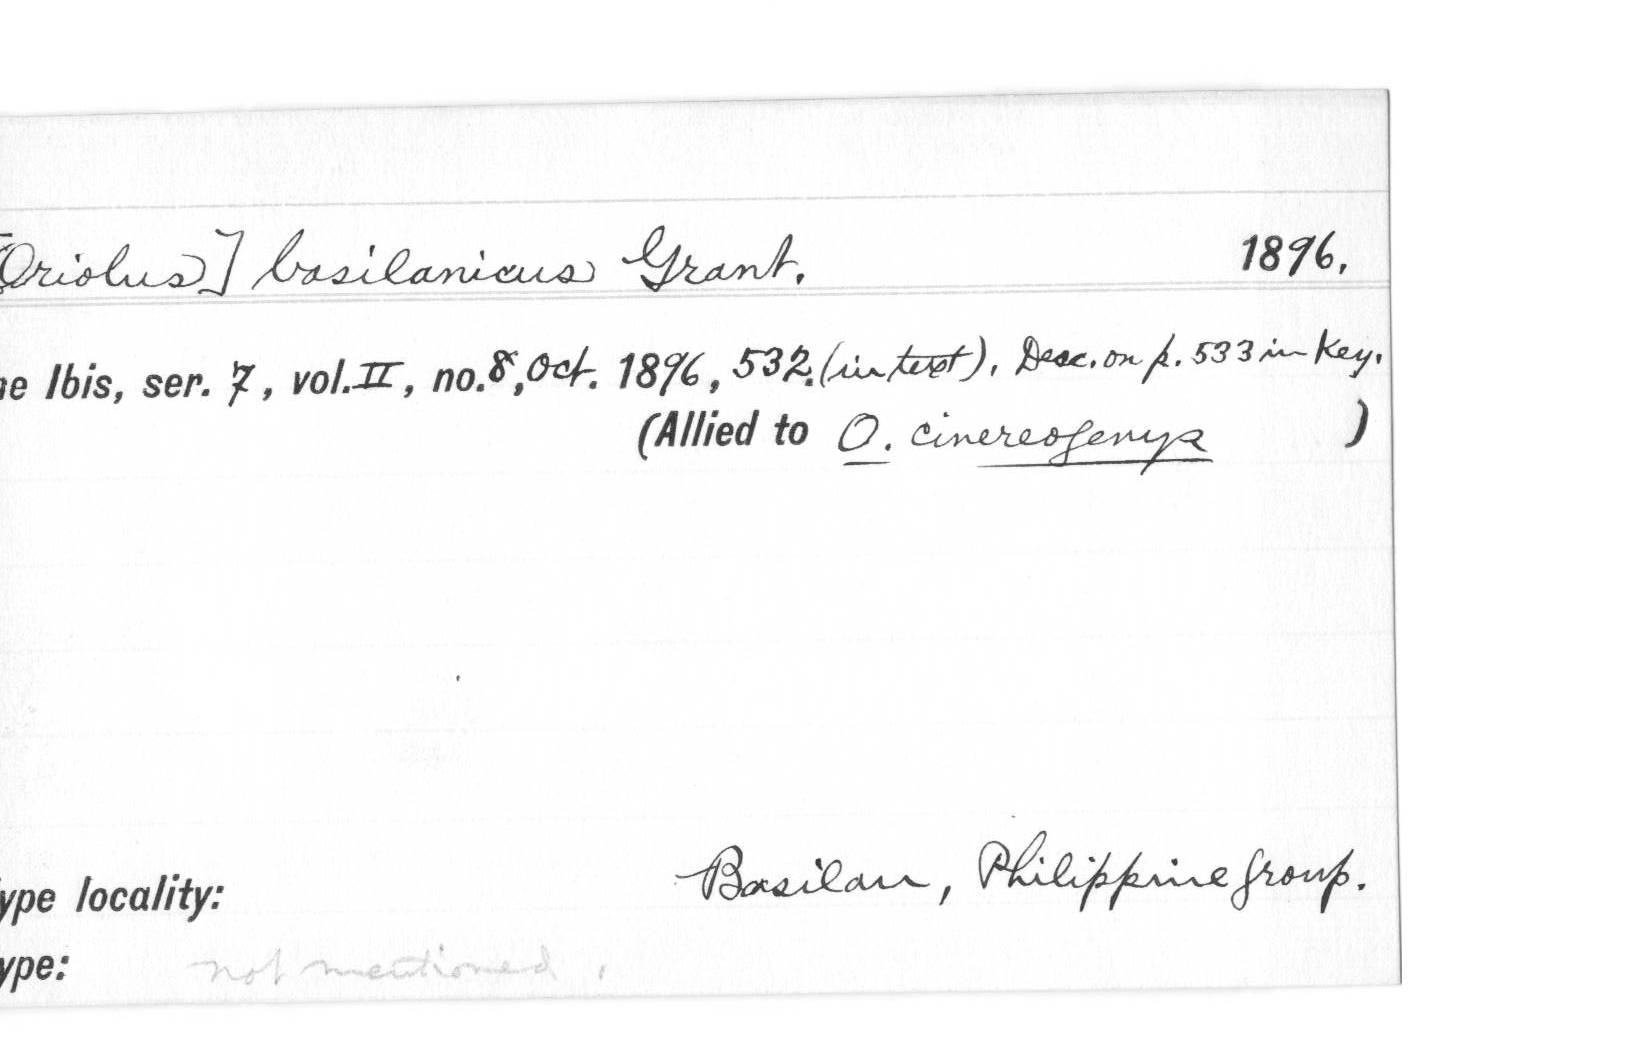 [Oriolus] basilanicus Grant. 1896.
he Ibis, ser. 7, vol. II, no. 8, Oct. 1896, 532. (in text). Desc. on p. 533 in Key.
(Allied to O. cinereogenys )
ype locality: Basilan, Philippine group.
ype: not mentioned.